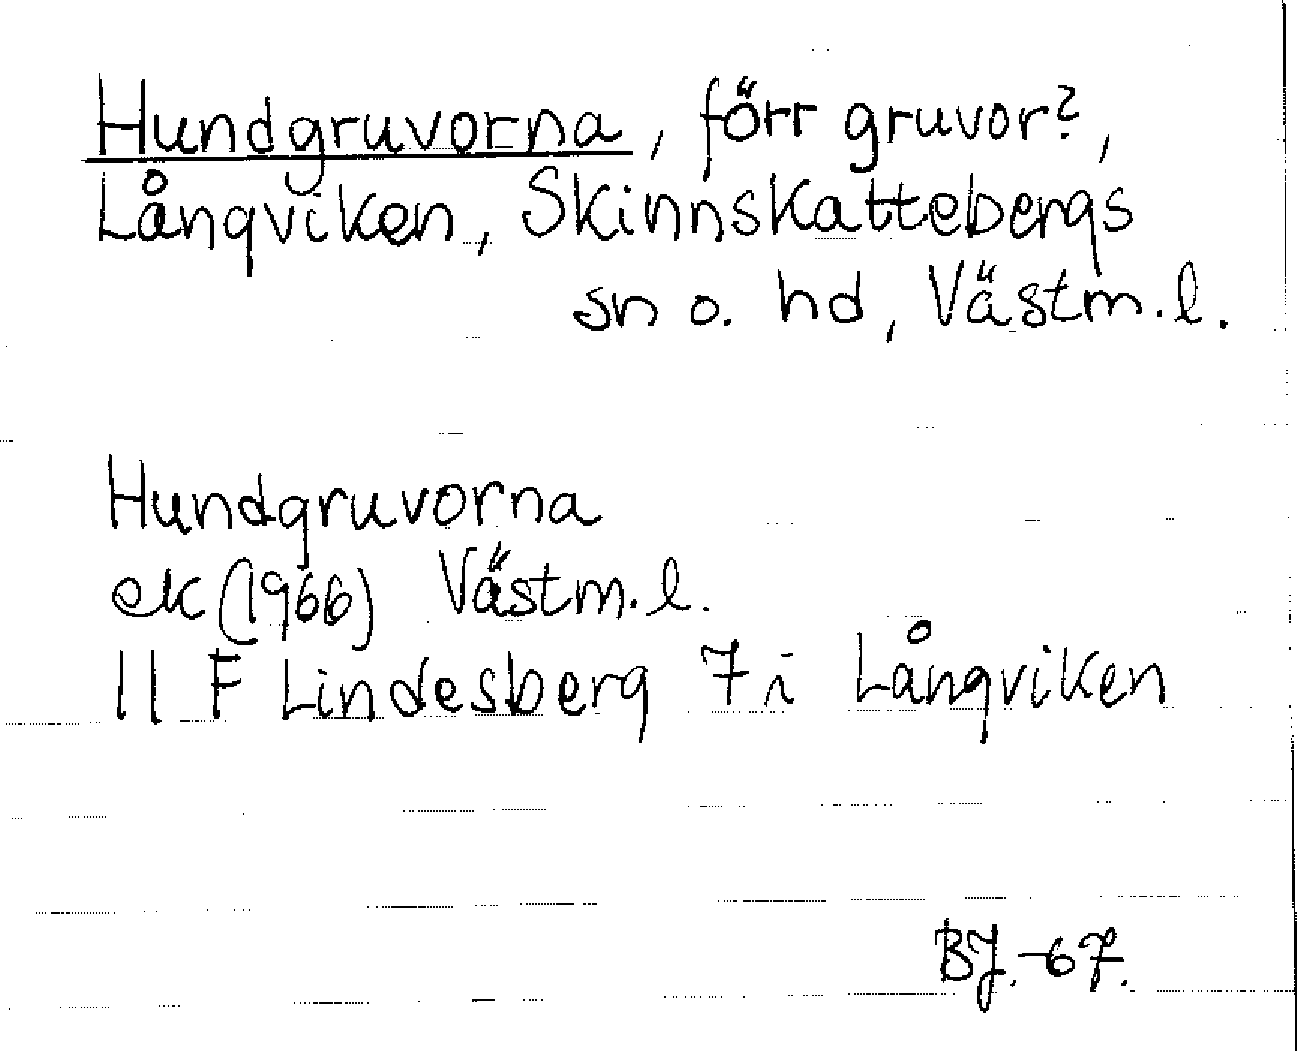 Hundgruvorna, förr gruvor?,
Långviken, Skinnskattebergs
sn o. hd, Västm. l.
Hundgruvorna
ek (1966) Västm. l.
11 F Lindesberg 7 i Långviken
BJ. -67.